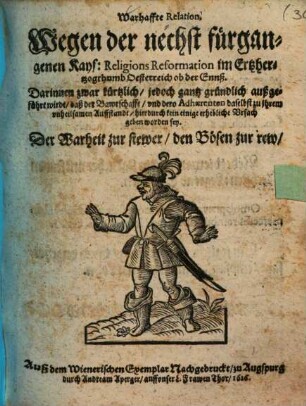 Warhaffte Relation,
Wegen der nechst fürgan-
genen Kays: Religions Reformation im Ertzher-
zogthumb Oesterreich ob der Ennß.
Darinnen zwar kürtzlich / jedoch gantz gründlich außge-
führet wirdt / daß der Bawrschafft / vnd dero Adhærenten daselbst zu jhrem
vnheilsamen Auffstandt / hierdurch kein einige erhebliche Vrsach
geben worden sey.
Der Warheit zur stewer / den Bösen zur rew /
Auß dem Wienerischen Exemplar Nachgedruckt / zu Augspurg
durch Andream Aperger / auff vnser L. Frawen Thor / 1626.